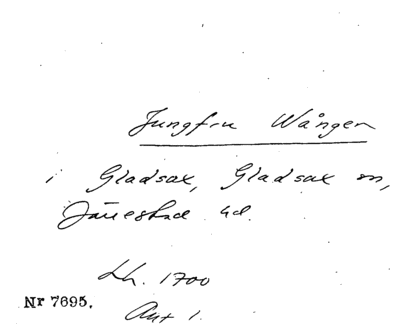 Jungfru Wången
i Gladsax, Gladsax sn,
Järrestad hd.
Lh. 1700
Nr 7695.
Avt 1.